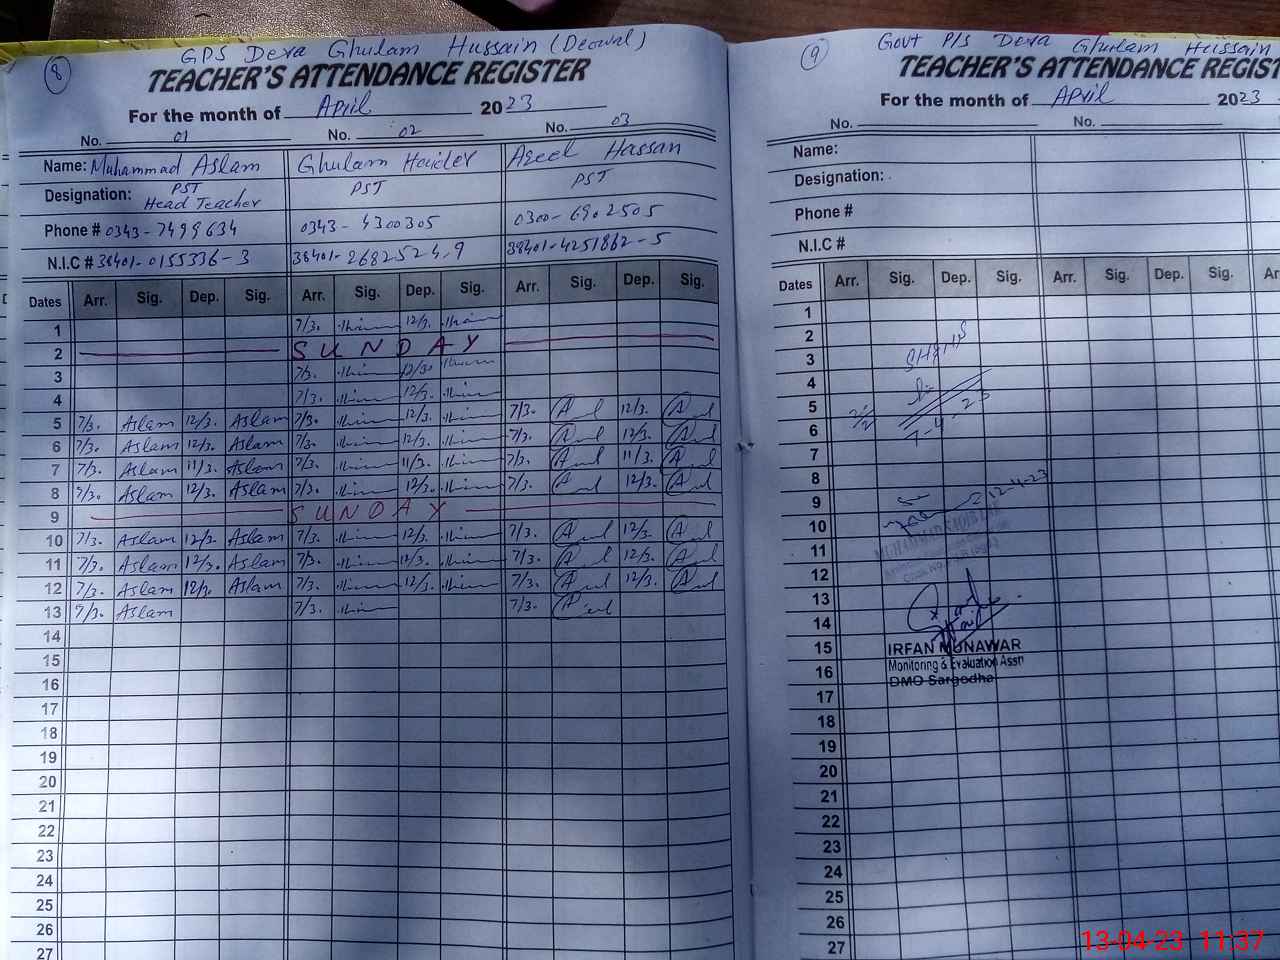 8
GPS Dera Ghulam Hussain (Deowal)
TEACHER'S ATTENDANCE REGISTER
For the month of April 2023
No. 01 No. 02 No. 03
Name: Muhammad Aslam Ghulam Haider Hassan
Designation: PST Head Teacher PST PST
Phone # 0343-7499634 0343-4300305 0300-6902505
N.I.C # 38401-0155336-3 38401-2682524-9 38401-4251862-5
Dates Arr. Sig. Dep. Sig. Arr. Sig. Dep. Sig. Arr. Sig. Dep. Sig.
1 7/3. 12/3.
2 SUNDAY
3 7/3. 12/30
4 7/3. 12/3.
5 7/3. Aslam 12/3. Aslam 7/3. 12/3. 7/3. 12/3.
6 7/3. Aslam 12/3. Aslam 7/3. 12/3. 7/3. 12/3.
7 7/3. Aslam 11/3. Aslam 7/3. 11/3. 7/3. 11/3.
8 7/3. Aslam 12/3. Aslam 7/3. 12/3. 7/3. 12/3.
9 SUNDAY
10 7/3. Aslam 12/3. Aslam 7/3. 12/3. 7/3. 12/3.
11 7/3. Aslam 12/3. Aslam 7/3. 12/3. 7/3. 12/3.
12 7/3. Aslam 12/3. Aslam 7/3. 12/3. 7/3. 12/3.
13 7/3. Aslam 7/3. 7/3.
14
15
16
17
18
19
20
21
22
23
24
25
26
27
9
Govt P/S Dera Ghulam Hussain
TEACHER'S ATTENDANCE REGIST
For the month of April 2023
No. No.
Name:
Designation:
Phone #
N.I.C #
Dates Arr. Sig. Dep. Sig. Arr. Sig. Dep. Sig. Ar
1
2
3
4
5
6
7
8
9
10
11
12
13
14
15
16
17
18
19
20
21
22
23
24
25
26
27
7-4-23
12-4-23
IRFAN MUNAWAR
Monitoring & Evaluation Asstt
DMO Sargodha
13-04-23 11:37